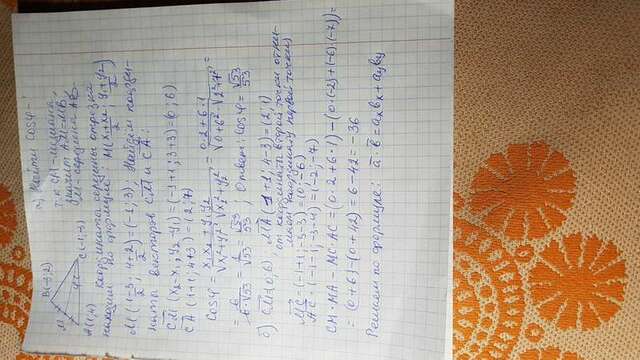 B(-3;2)
a) Найти cosφ-?
M
т.к CM-медиана,
значит AM=MB,
M-середина AB
φ
A(1;4)
C(-1;-3)
Координата середины отрезка
находим по формуле: M(x₁+x₂/2; y₁+y₂/2)
M(1-3/2; 4+2/2)=(-1;3); Найдём коорди-
наты векторов CM и CA:
CM (x₂-x₁; y₂-y₁)=(-1+1; 3+3)=(0;6)
CA (1+1; 4+3)=(2;7)
cosφ = x₁x₂+y₁y₂/√x²+y₁² · √x₂²+y₂² = 0·2+6·1/√0+6² · √2²+7² =
= 6/6·√53 = 1/√53 = √53/53; Ответ: cosφ = √53/53
б) CM(0;6); MA(1+1; 4-3)=(2;1)
от координаты второй точки отни-
маем координату первой точки)
MC=(-1+1; -3-3)=(0;-6)
AC=(-1-1; -3-4)=(-2;-7)
CM·MA - MC·AC=(0·2+6·1)-(0·(-2)+(-6)·(-7))=
=(0+6)-(0+42)=6-42=-36
Решаем по формуле: a·b=aₓbₓ+aᵧbᵧ